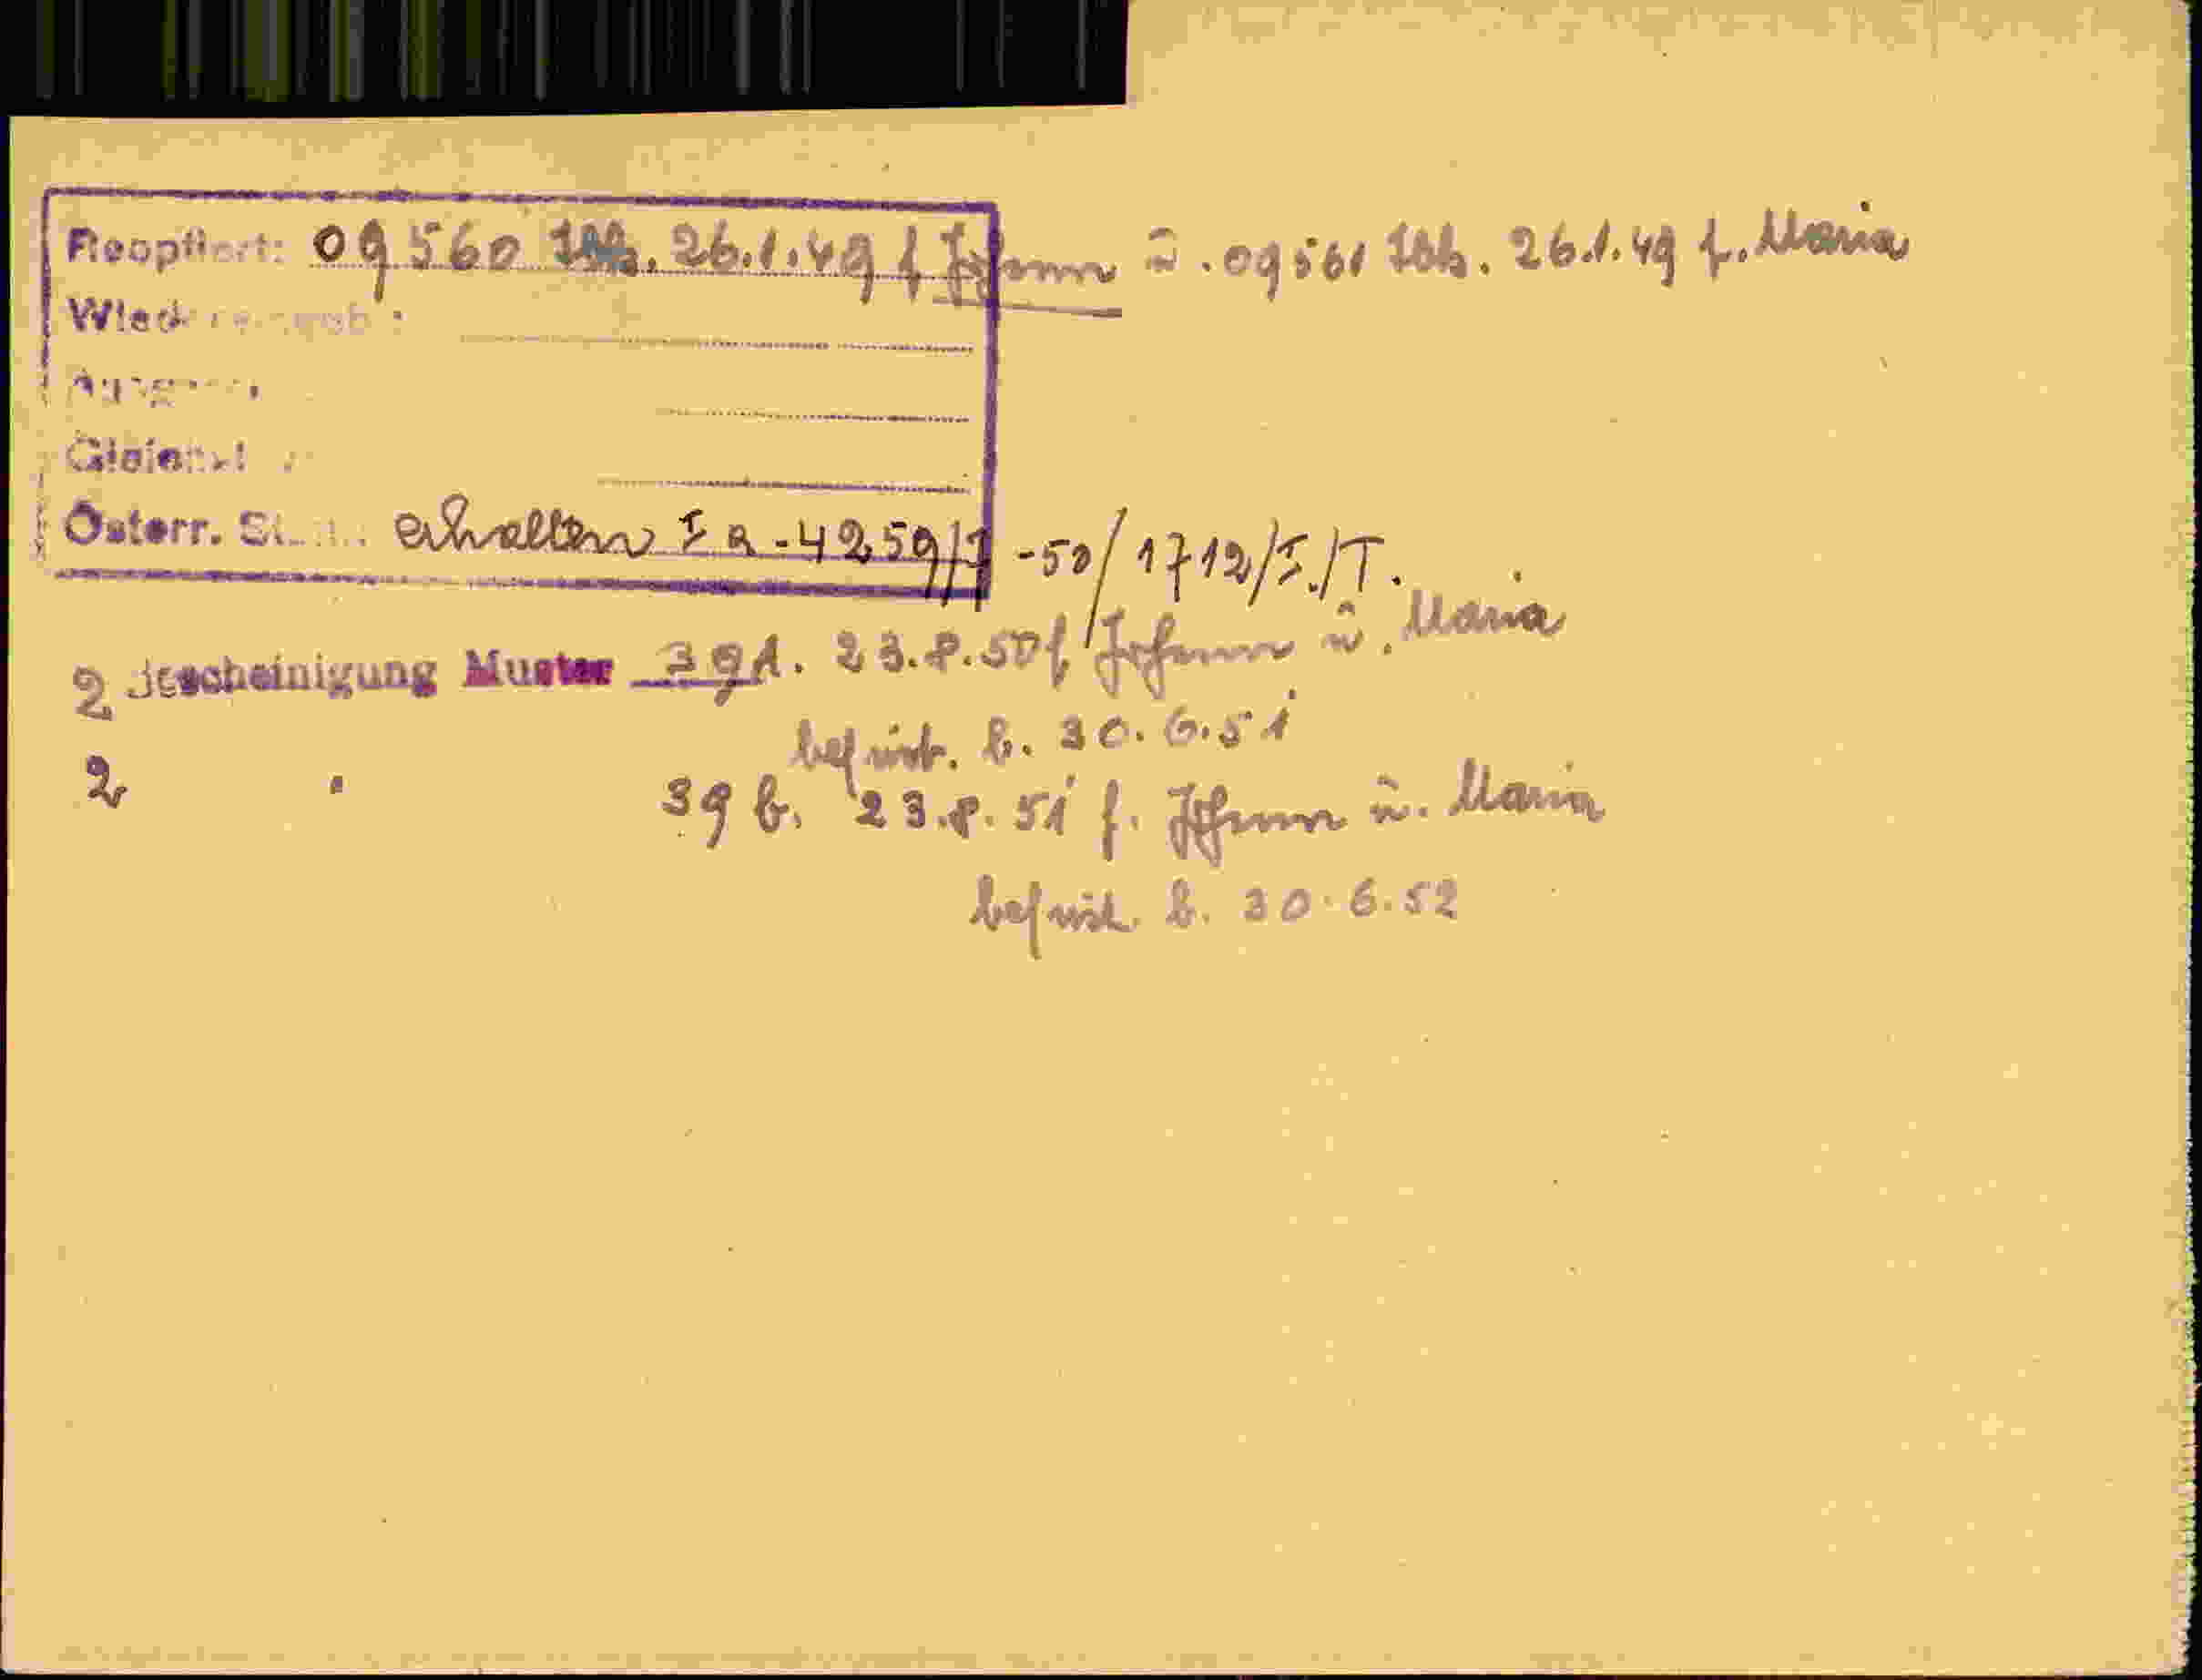 Reopfiert: 09560 Jbk. 26.1.49 f Johann u. 09561 Jbk. 26.1.49 f. Maria
Österr. erhalten I a - 4259/1 - 50/1712/I./T.
2 Bescheinigung Muster 39A. 23.8.50 f Johann u. Maria
befrist. b. 30.6.51
2 " 39 b. 23.8.51 f. Johann u. Maria
befrist. b. 30.6.52